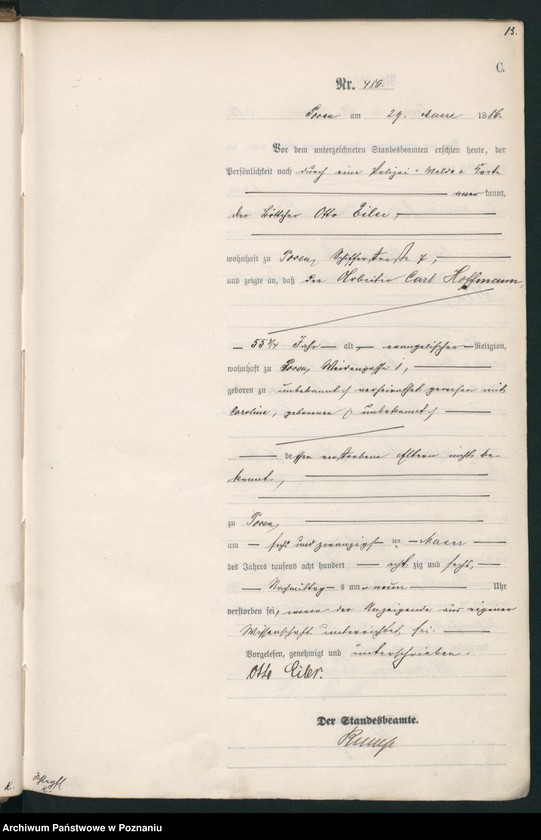 13.
C.
Nr. 486.
Posen am 29. Maerz 1886.
Vor dem unterzeichneten Standesbeamten erschien heute, der
Persönlichkeit nach durch eine Polizei-Melde-Karte
anerkannt,
der Böttcher Otto Eiler,
wohnhaft zu Posen, Schifferstraße 7,
und zeigte an, daß der Arbeiter Carl Hoffmann,
55 3/4 Jahr alt, evangelischer Religion,
wohnhaft zu Posen, Weidengasse 1,
geboren zu unbekannt, verheirathet gewesen mit
Caroline, geborenen unbekannt,
dessen verstorbene Eltern nicht be-
kannt,
zu Posen,
am sechs und zwanzigsten Maerz
des Jahres tausend acht hundert achtzig und sechs,
Nachmittags um neun Uhr
verstorben sei, wovon der Anzeigende aus eigener
Wissenschaft unterrichtet sei.
Vorgelesen, genehmigt und unterschrieben.
Otto Eiler.
Der Standesbeamte.
K.
Archiwum Państwowe w Poznaniu